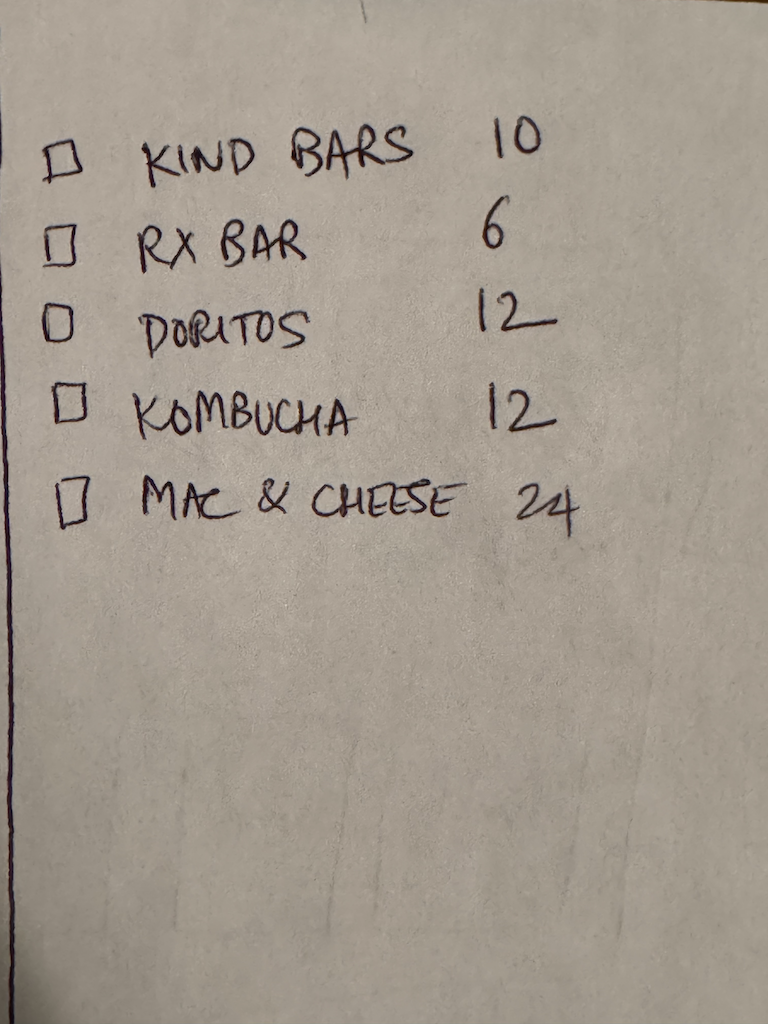 ☐ KIND BARS 10
☐ RX BAR 6
☐ DORITOS 12
☐ KOMBUCHA 12
☐ MAC & CHEESE 24